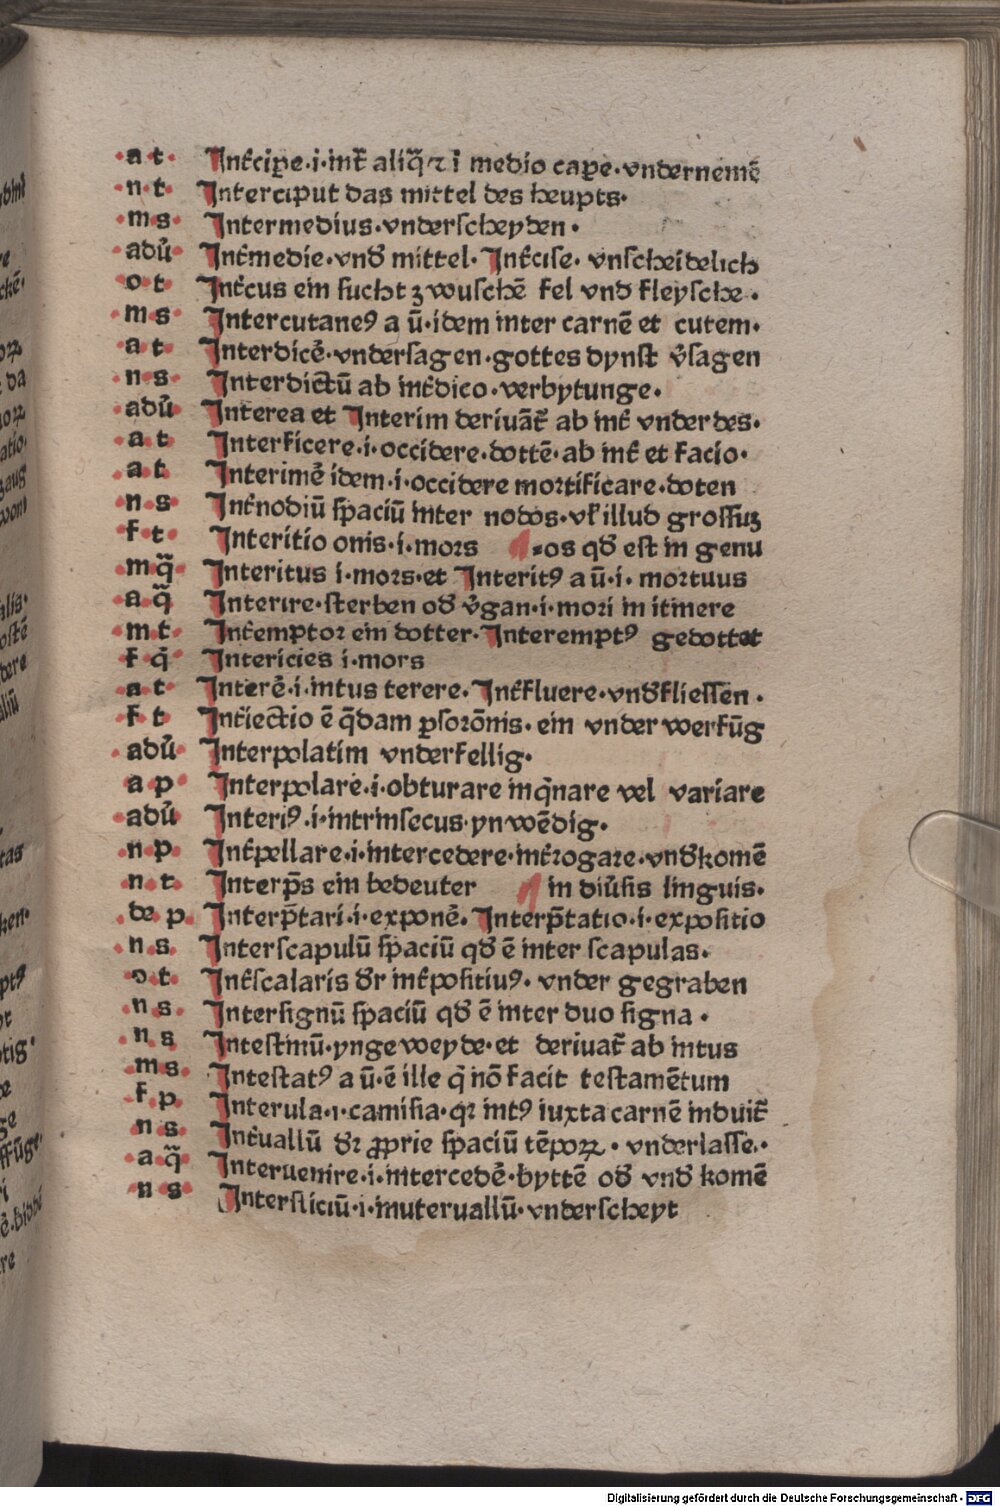 ·a t· Int̄cipe·i·int̄ aliq̄ ⁊ ī medio cape·vndernemē
·n t· Interciput das mittel des heupts·
·m s· Intermedius·vnderscheyden·
adū· Int̄medie·vnd̄ mittel·Int̄cise· vnscheidelich
·o t· Int̄cus ein sucht zwuschē fel vnd fleysche·
·m s· Intercutaneꝰ a ū·idem inter carnē et cutem·
·a t· Interdicē·vndersagen·gottes dynst v̄sagen
·n s· Interdictū ab int̄dico·verbytunge·
adū· Interea et Interim deriuāt̄ ab int̄ vnder des·
·a t· Interficere·i·occidere·dottē·ab int̄ et facio·
·a t· Interimē idem·i·occidere mortificare·doten
·n s· Int̄nodiū spaciū inter nodos·vl̄ illud grossuꝫ
·f t· Interitio onis·i·mors ⸗os qd̄ est in genu
·m q̄· Interitus i·mors·et Interitꝰ a ū·i·mortuus
·a q̄· Interire·sterben od̄ v̄gan·i·mori in itinere
·m t· Int̄emptor ein dotter·Interemptꝰ gedottet
·f q̄ Intericies i·mors
·a t· Interē·i·intus terere·Int̄fluere·vnd̄fliessen·
·f t Int̄iectio ē q̄dam ꝑsorōnis·ein vnder werfūg
·adū· Interpolatim vnderfellig·
·a p· Interpolare·i·obturare inq̄nare vel variare
·adū· Interiꝰ·i·intrinsecus·ynwēdig·
·n p· Int̄pellare·i·intercedere·int̄rogare·vnd̄komē
·n t· Interp̄s ein bedeuter in diūsis linguis·
·de p· Interp̄tari·i·exponē·Interp̄tatio·i·expositio
·n s· Interscapulū spaciū qd̄ ē inter scapulas·
·o t· Int̄scalaris dr̄ int̄positiuꝰ·vnder gegraben
·n s· Intersignū spaciū qd̄ ē inter duo signa·
·n s Intestinū·yngeweyde·et deriuat̄ ab intus
·m s· Intestatꝰ a ū·ē ille q̄ nō facit testamētum
·f p· Interula·i·camisia·qꝛ intꝰ iuxta carnē induit̄
·n s· Int̄uallū dr̄ ꝓprie spaciū tēpoꝝ·vnderlasse·
·a q̄· Interuenire·i·intercedē·byttē od̄ vnd̄ komē
·n s· Intersticiū·i·inuteruallū·vnderscheyt
Digitalisierung gefördert durch die Deutsche Forschungsgemeinschaft - DFG